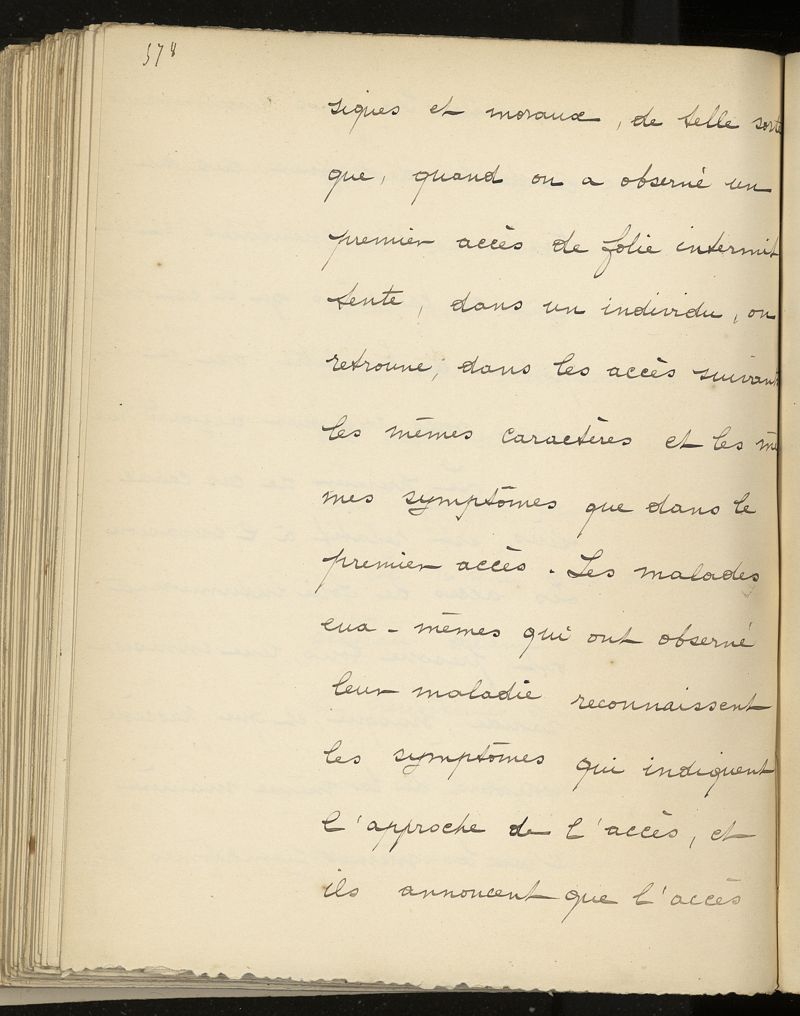 378
siques et moraux, de telle sorte
que, quand on a observé un
premier accès de folie intermit
tente, dans un individu, on
retrouve, dans les accès suivant
les mêmes caractères et les mê
mes symptômes que dans le
premier accès. Les malades
eux-mêmes qui ont observé
leur maladie reconnaissent
les symptômes qui indiquent
l'approche de l'accès, et
ils annoncent que l'accès